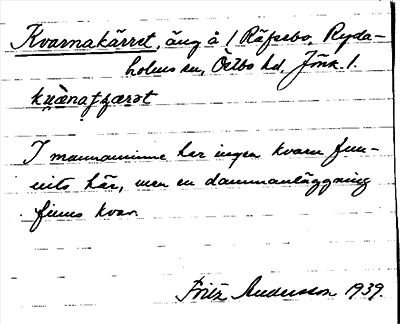 Kvarnakärret, äng å 1 Räfsebo, Ryda-
holms sn, Östbo hd, Jönk. l.
kwæ̀naɟɟæɾət
I mannaminne har ingen kvarn fun-
nits här, men en dammanläggning
finns kvar.
Fritz Andersson 1939.